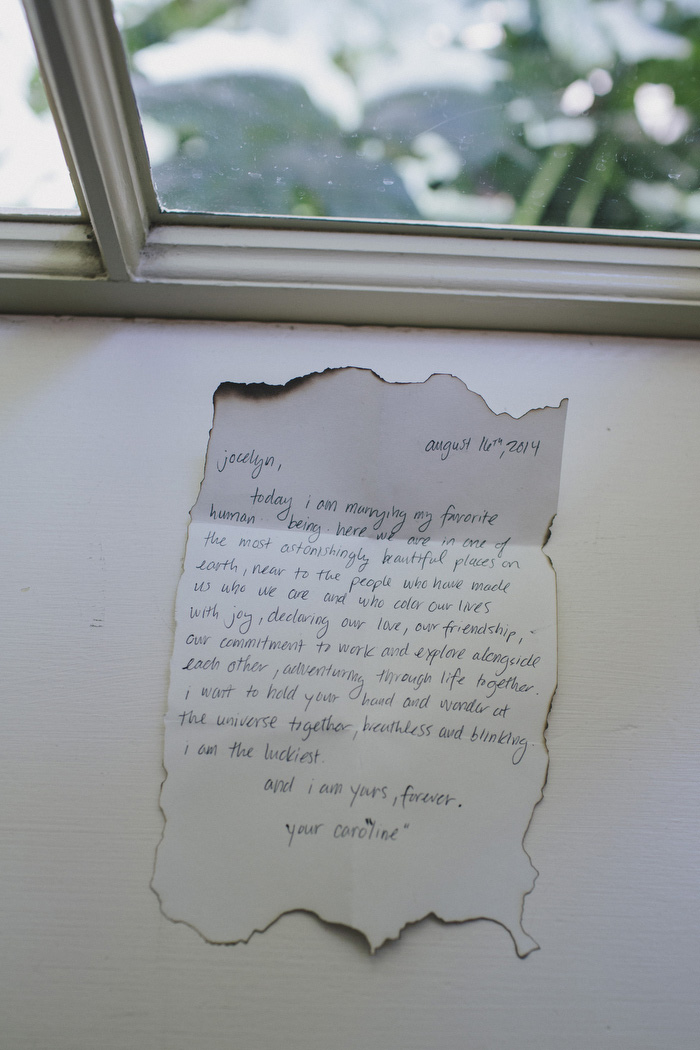 august 16TH, 2014
jocelyn,
today i am marrying my favorite
human being. here we are in one of
the most astonishingly beautiful places on
earth, near to the people who have made
us who we are and who color our lives
with joy, declaring our love, our friendship,
our commitment to work and explore alongside
each other, adventuring through life together.
i want to hold your hand and wonder at
the universe together, breathless and blinking.
i am the luckiest.
and i am yours, forever.
your caro"line"